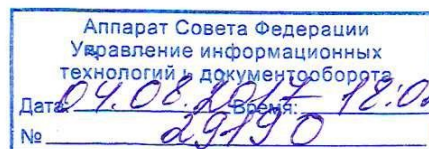 Аппарат Совета Федерации
Управление информационных
технологий и документооборота
Дата: 04.08.2017 Время: 18:0
№ 29190